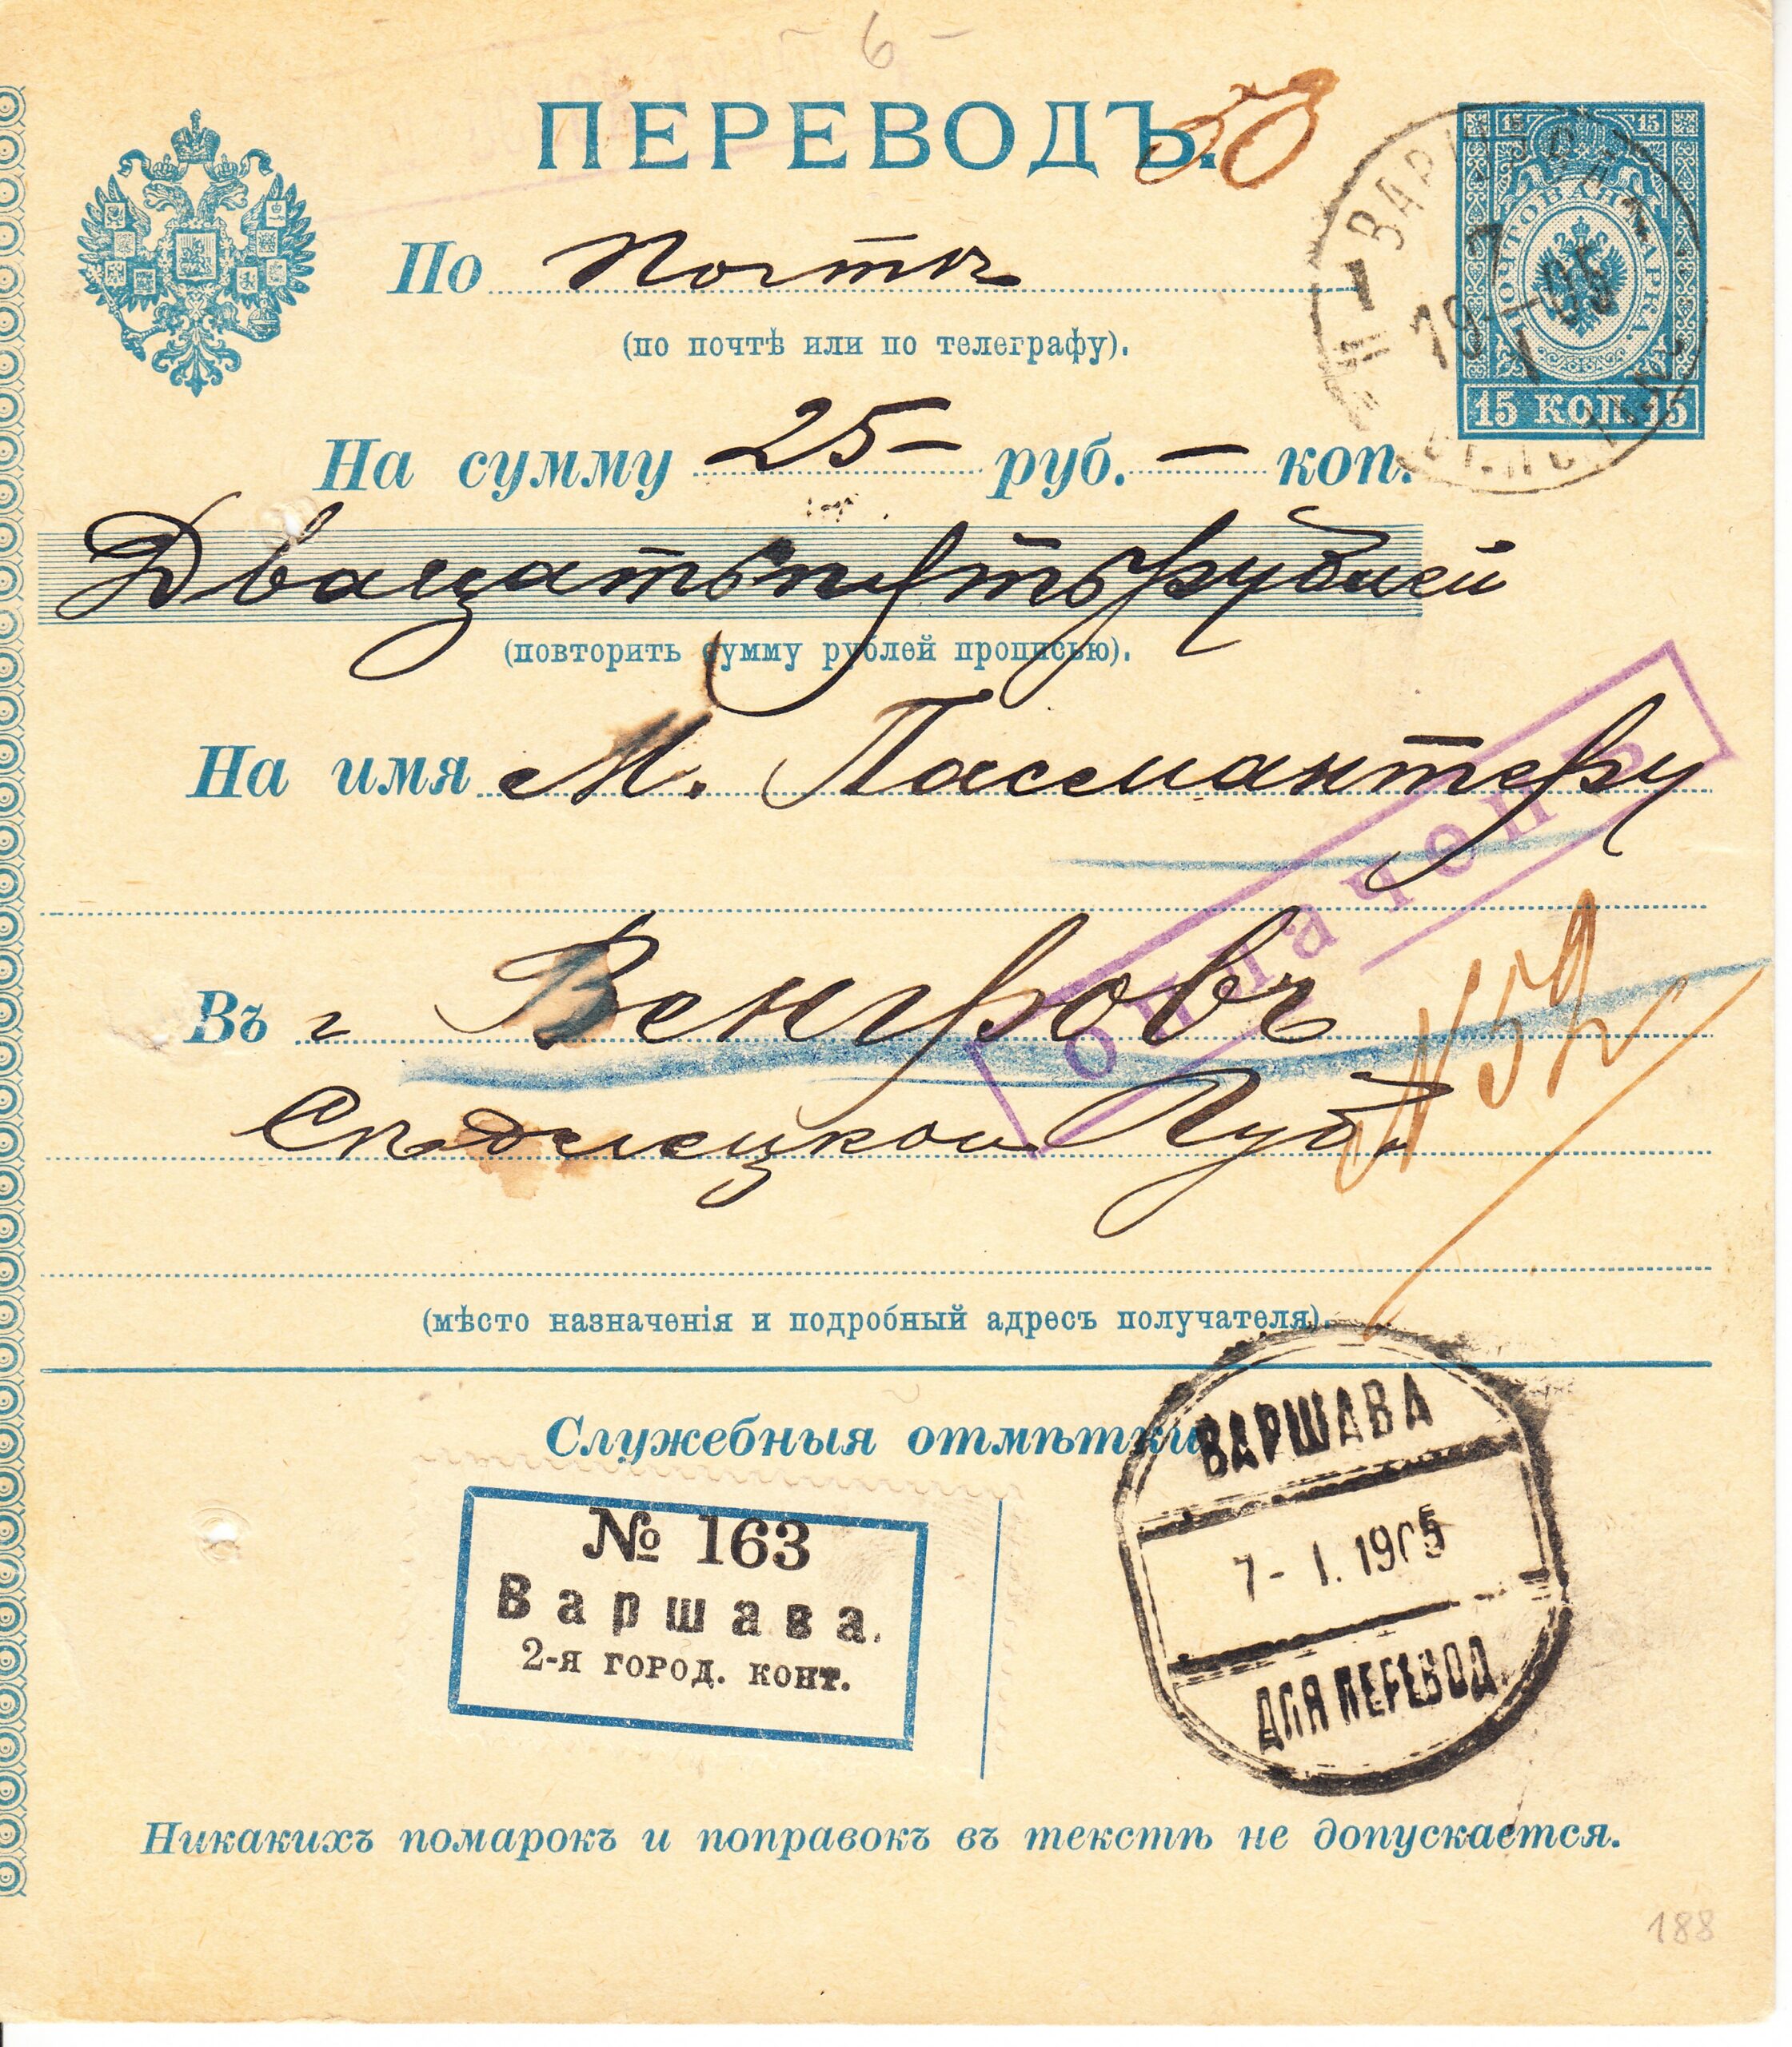 6 -
ПЕРЕВОДЪ.
15 15
ПОЧТОВАЯ МАРКА
15 КОП. 15
ВАРШАВА
19 7/I 05
По Почтѣ
(по почтѣ или по телеграфу).
На сумму 25- руб. - коп.
Двацать пять рублей
(повторить сумму рублей прописью).
На имя М. Пасмантеру
оплаченъ
Въ г Венгровъ
N 52
Сѣдлецкой Губ.
(мѣсто назначенія и подробный адресъ получателя).
Служебныя отмѣтки
№ 163
Варшава.
2-я город. конт.
ВАРШАВА
7- I. 1905
ДЛЯ ПЕРЕВОД.
Никакихъ помарокъ и поправокъ въ текстѣ не допускается.
188